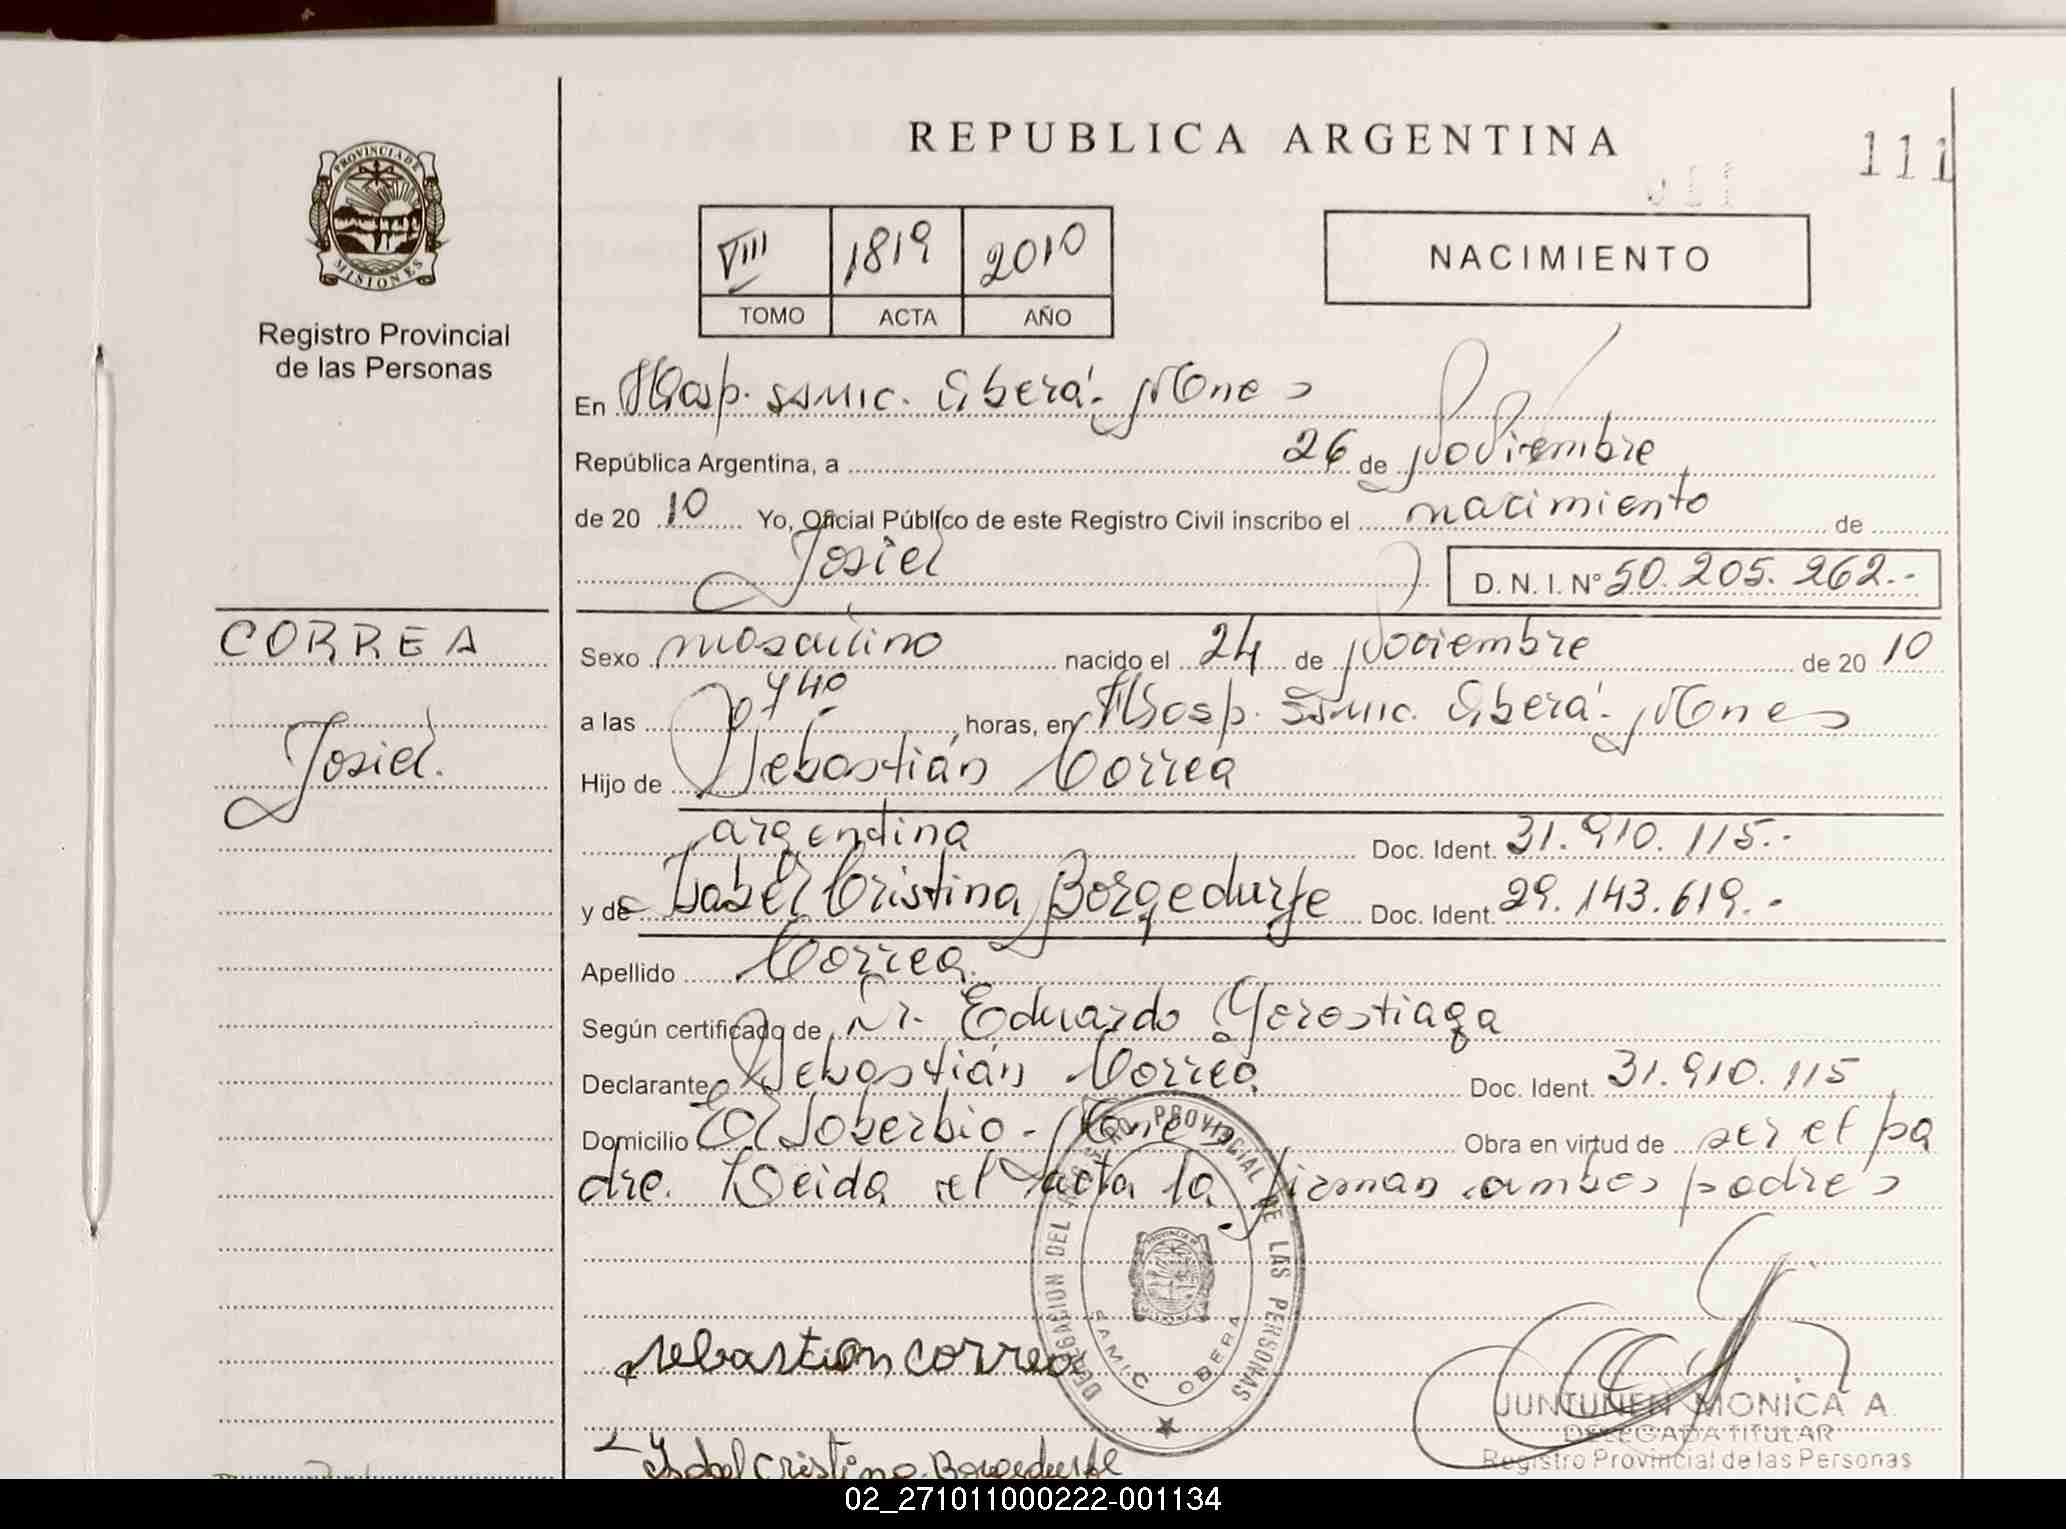 REPUBLICA ARGENTINA
111
PROVINCIA DE
MISIONES
Registro Provincial
de las Personas
VIII 1819 2010
TOMO ACTA AÑO
NACIMIENTO
En Hosp. SSMIC. Oberá. Mnes
República Argentina, a 26 de Noviembre
de 20 10 Yo, Oficial Público de este Registro Civil inscribo el nacimiento de
Josiel D. N. I. N° 50.205.262.-
CORREA
Josiel.
Sexo masculino nacido el 24 de Noviembre de 20 10
a las 0740 horas, en Hosp. SSMIC. Oberá. Mnes
Hijo de Sebastián Correa
argentina Doc. Ident. 31.910.115.-
y de Isabel Cristina Borgedurfe Doc. Ident. 29.143.619.-
Apellido Correa
Según certificado de Dr. Eduardo Gerostiaga
Declarante Sebastián Correa Doc. Ident. 31.910.115
Domicilio El Soberbio - Mnes Obra en virtud de ser el pa
dre. Leida el acta la firman ambos padres
DELEGACION DEL REGISTRO PROVINCIAL DE LAS PERSONAS
SAMIC OBERA
sebastian correa
JUNTUNEN MONICA A.
DELEGADA TITULAR
Registro Provincial de las Personas
Ysabel Cristina Borgedurfe
02_271011000222-001134